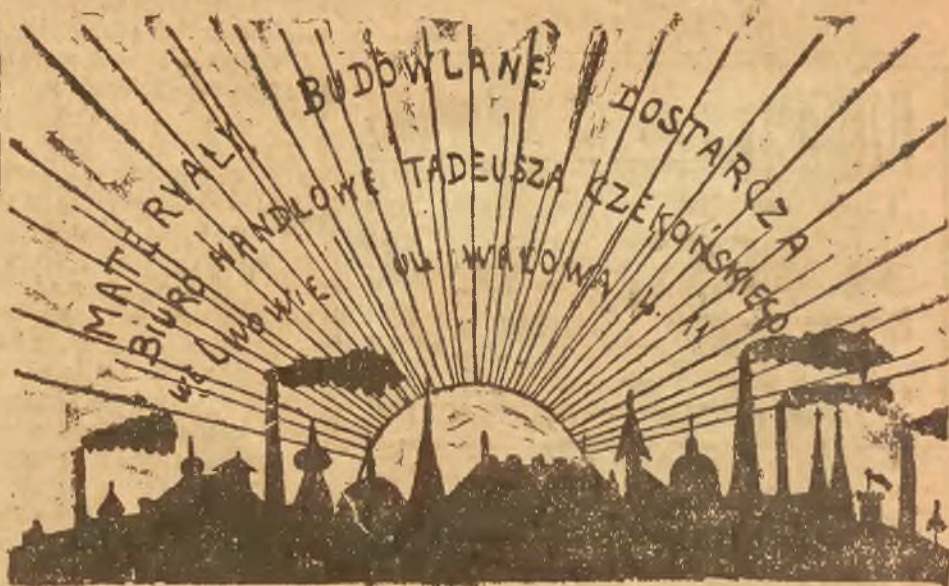 MATERYAŁY BUDOWLANE DOSTARCZA
BIURO HANDLOWE TADEUSZA CZEKOŃSKIEGO
WE LWOWIE UL. WAŁOWA L. 11